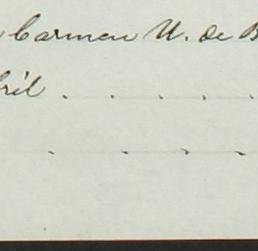 Carmen U. de B
ril . . . .
. . . .